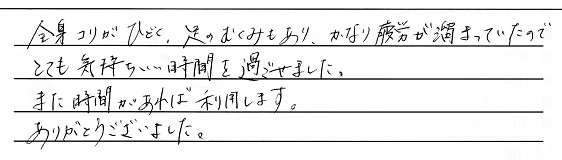 全身コリがひどく、足のむくみもあり、かなり疲労が溜まっていたので
とても気持ちいい時間を過ごせました。
また時間があれば利用します。
ありがとうございました。